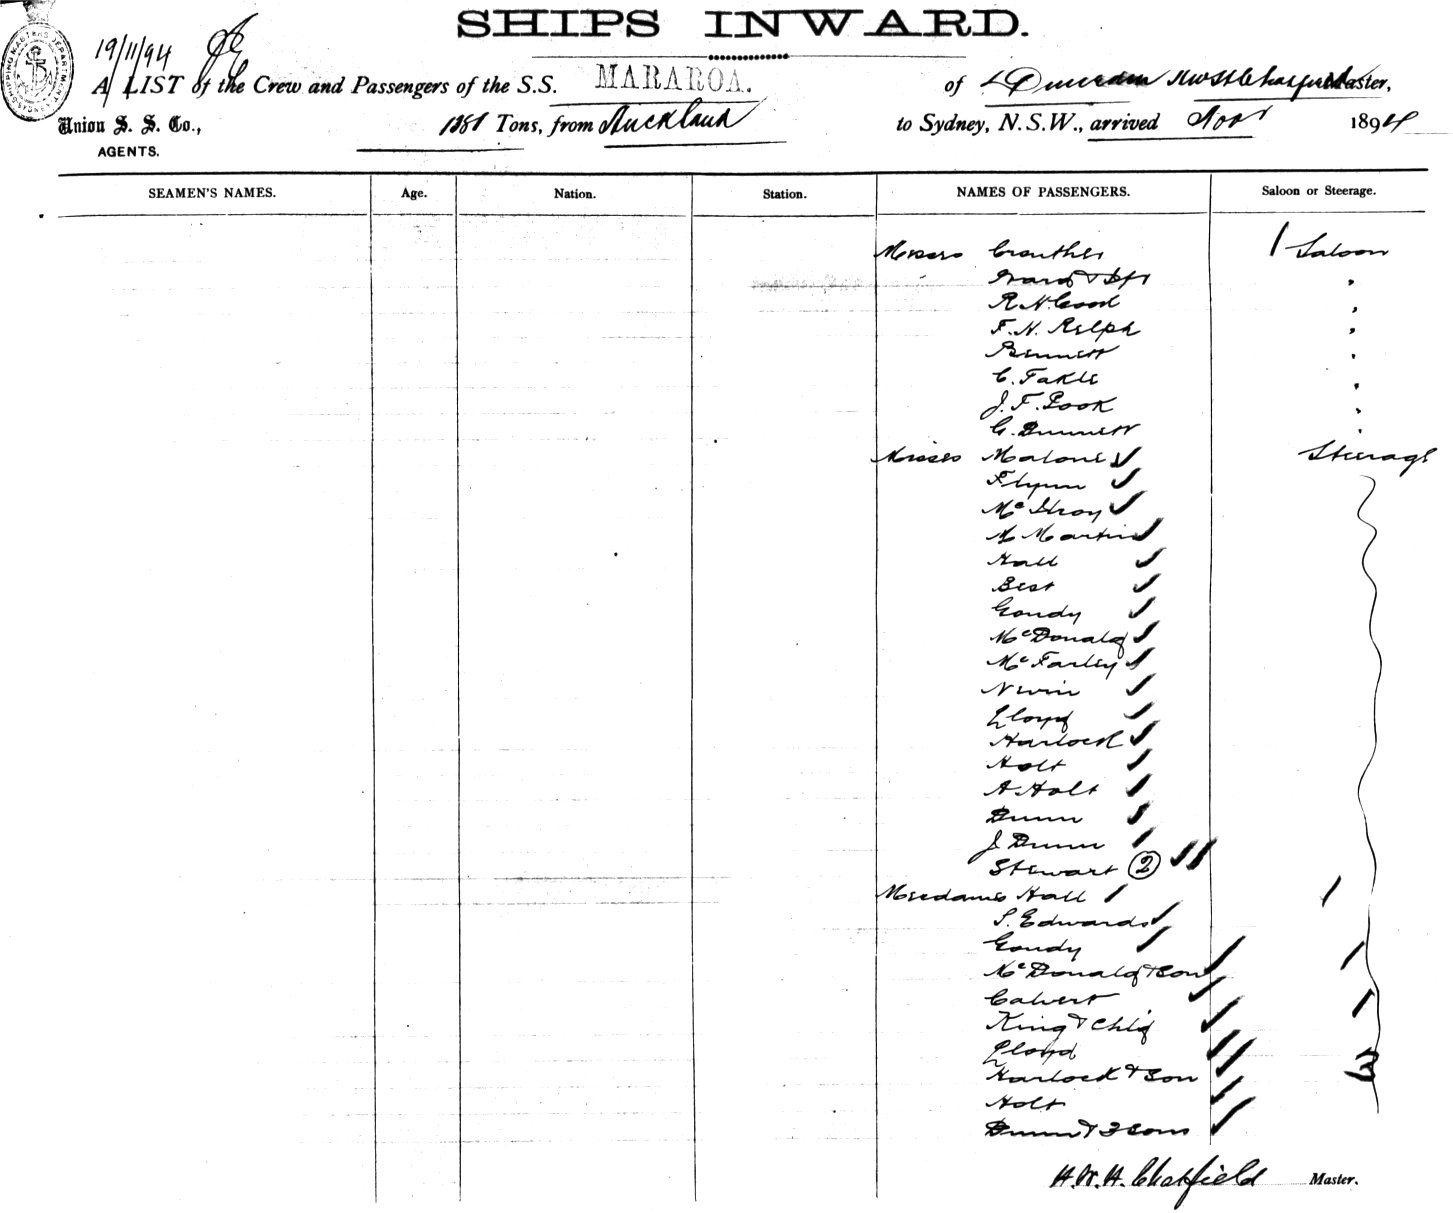 SHIPS INWARD.
19/11/94
A LIST of the Crew and Passengers of the S.S. MARAROA. of Master,
Union S. S. Co., Tons, from Auckland to Sydney, N.S.W., arrived Nov 1894
AGENTS.
SEAMEN'S NAMES. Age. Nation. Station. NAMES OF PASSENGERS. Saloon or Steerage.
Messrs Crowther 1 Saloon
Ward &
R. N. Good
F. N. Relph
Bennett
C. Fakle
J. F. Pook
G. Bennett
Misses Malone Steerage
Flynn
McIlroy
M Martin
Hall
Best
Goudy
McDonald
McFarley
Nevin
Lloyd
Harlock
Holt
A Holt
Dunn
J. Dunn
Stewart 2
Mesdames Hall
S. Edwards
Goudy
McDonald & Son
Calvert
King & Chld
Lloyd
Harlock & Son 3
Holt
Dunn & 3 Sons
H. W. H. Chatfield Master.